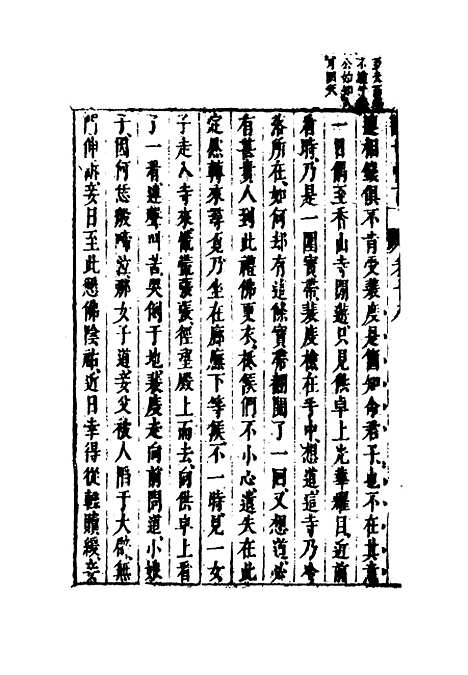 連相錢俱不肯受裴度是箇知命君子也不在其意
一日偶至香山寺閒遊只見供卓上光華耀目近前
看時乃是一圍寶帶裴度檢在手中想道這寺乃冷
落所在如何却有這條寶帶翻閱了一回又想道必
有甚貴人到此禮佛更衣祗候們不小心遺失在此
定然轉來尋覔乃坐在廊廡下等候不一時見一女
子走入寺來慌慌張張徑望殿上而去向供卓上看
了一看連聲叫苦哭倒于地裴度走向前問道小娘
子因何恁般啼泣那女子道妾父被人陷于大辟無
門伸訴妾日至此懇佛陰祐近日幸得從輕贖緩妾